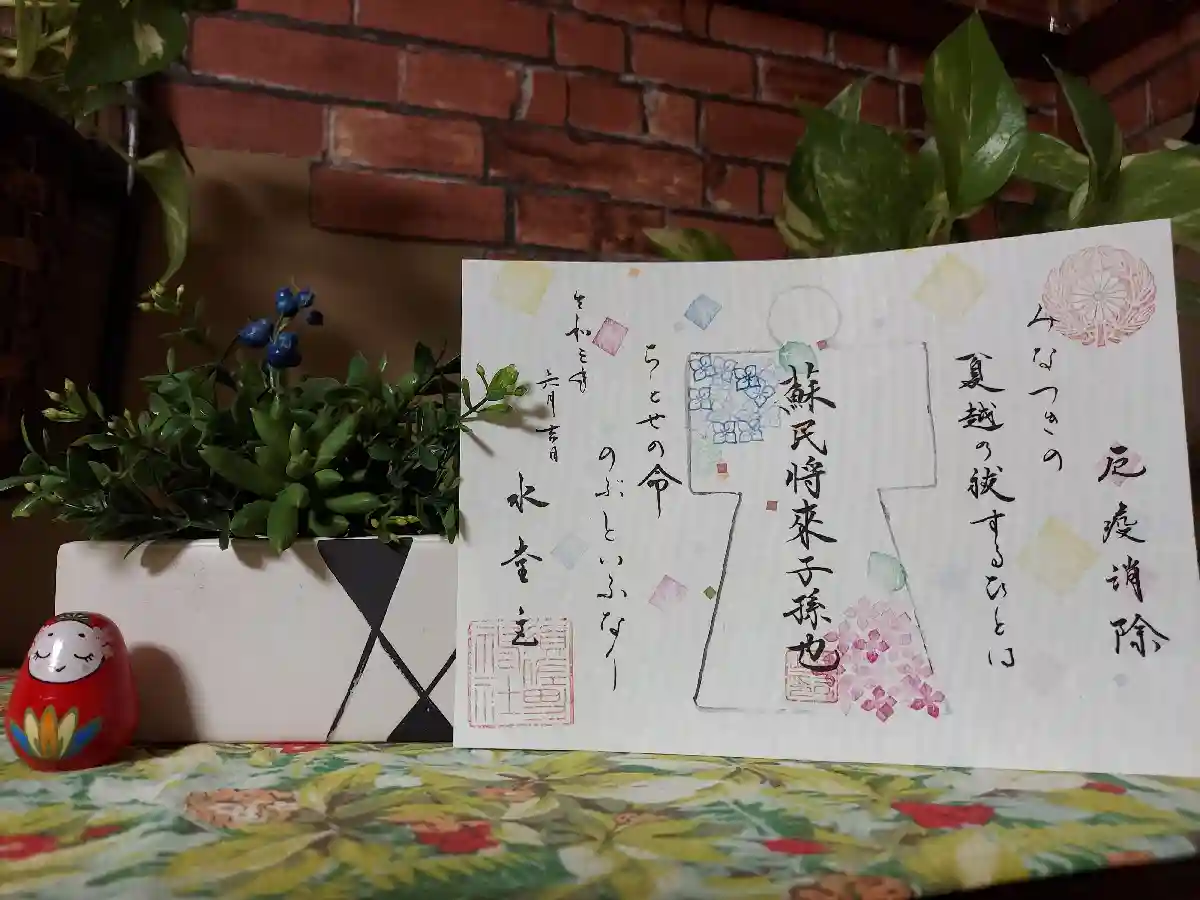 厄疫消除
みなつきの
夏越の祓するひとは
蘇民将來子孫也
ちとせの命
のぶといふなり
令和三年
六月吉日
水堂主